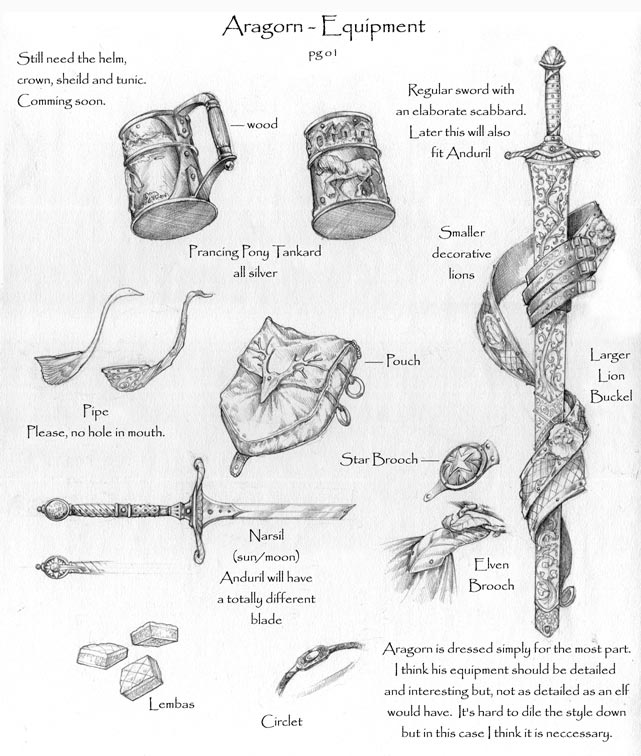 Aragorn - Equipment
pg 01
Still need the helm,
crown, sheild and tunic.
Comming soon.
wood
Regular sword with
an elaborate scabbard.
Later this will also
fit Anduril
Prancing Pony Tankard
all silver
Smaller
decorative
lions
Pouch
Larger
Lion
Buckel
Pipe
Please, no hole in mouth.
Star Brooch
Narsil
(sun/moon)
Anduril will have
a totally different
blade
Elven
Brooch
Lembas
Circlet
Aragorn is dressed simply for the most part.
I think his equipment should be detailed
and interesting but, not as detailed as an elf
would have. It's hard to dile the style down
but in this case I think it is neccessary.